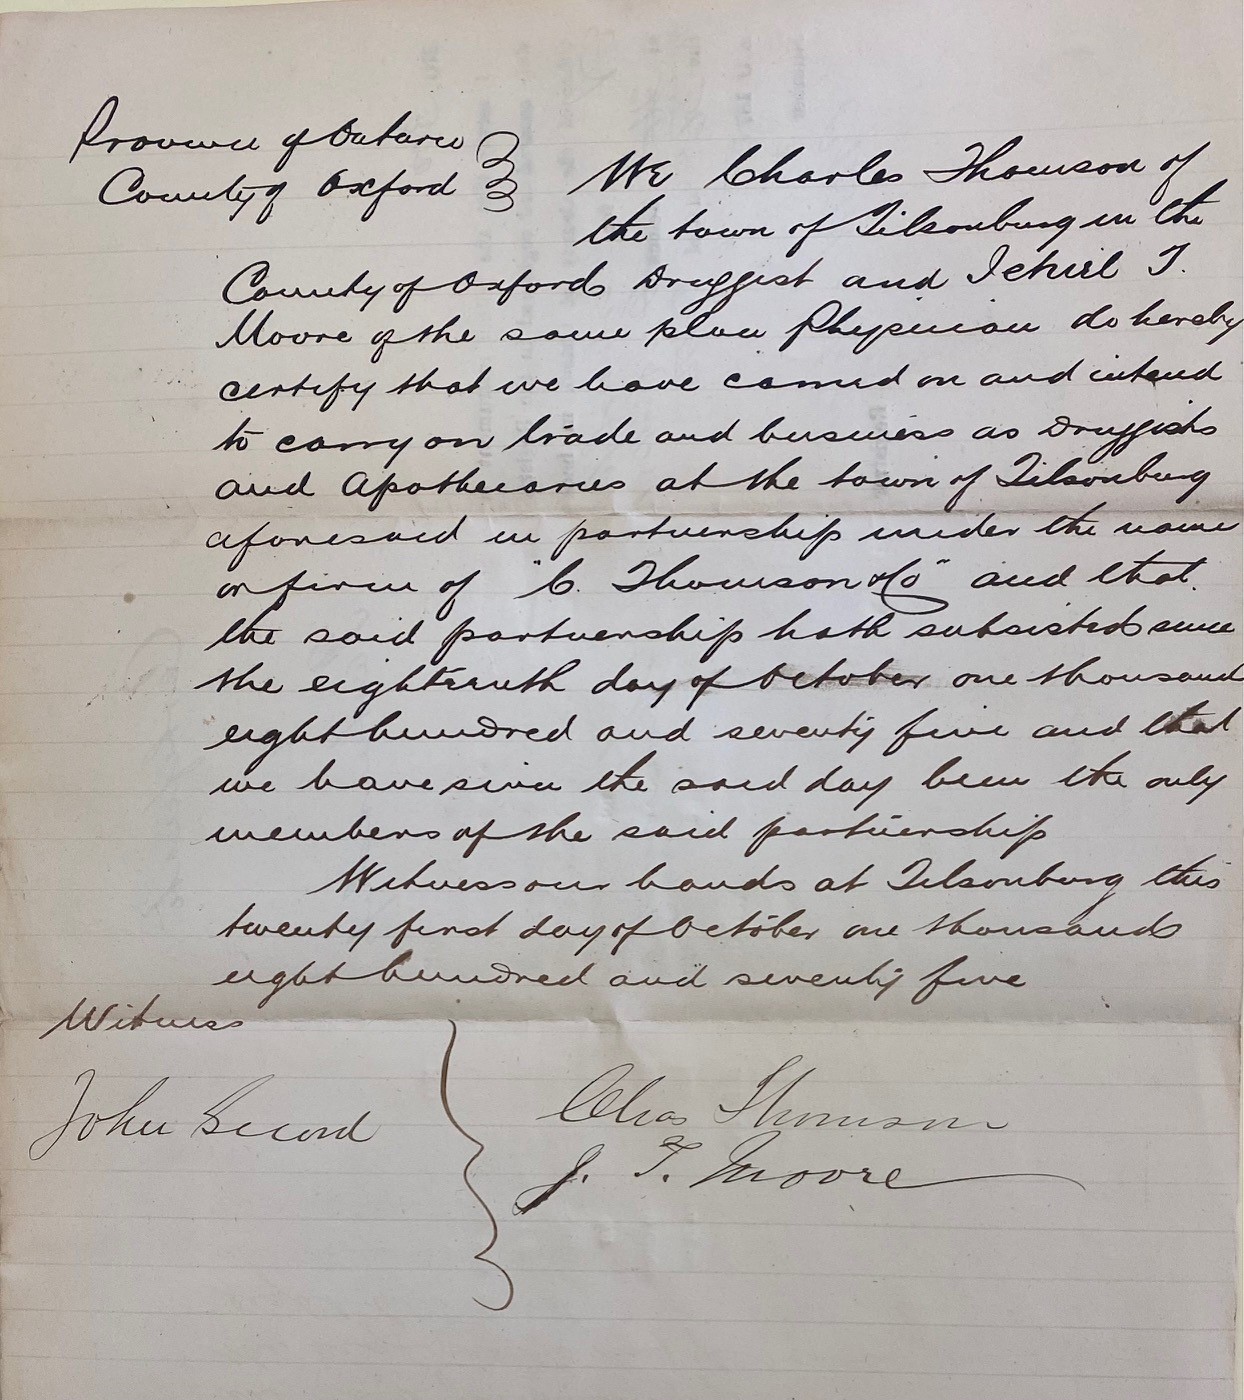 Province of Ontario
County of Oxford
We Charles Thomson of
the town of Tilsonburg in the
County of Oxford Druggist and Jehiel T.
Moore of the same place Physician do hereby
certify that we have carried on and intend
to carry on trade and business as Druggists
and Apothecaries at the town of Tilsonburg
aforesaid in partnership under the name
or firm of "C. Thomson & Co" and that
the said partnership hath subsisted since
the eighteenth day of October one thousand
eight hundred and seventy five and that
we have since the said day been the only
members of the said partnership
Witness our hands at Tilsonburg this
twenty first day of October one thousand
eight hundred and seventy five
Witness
John Secord
Chas Thomson
J. T. Moore